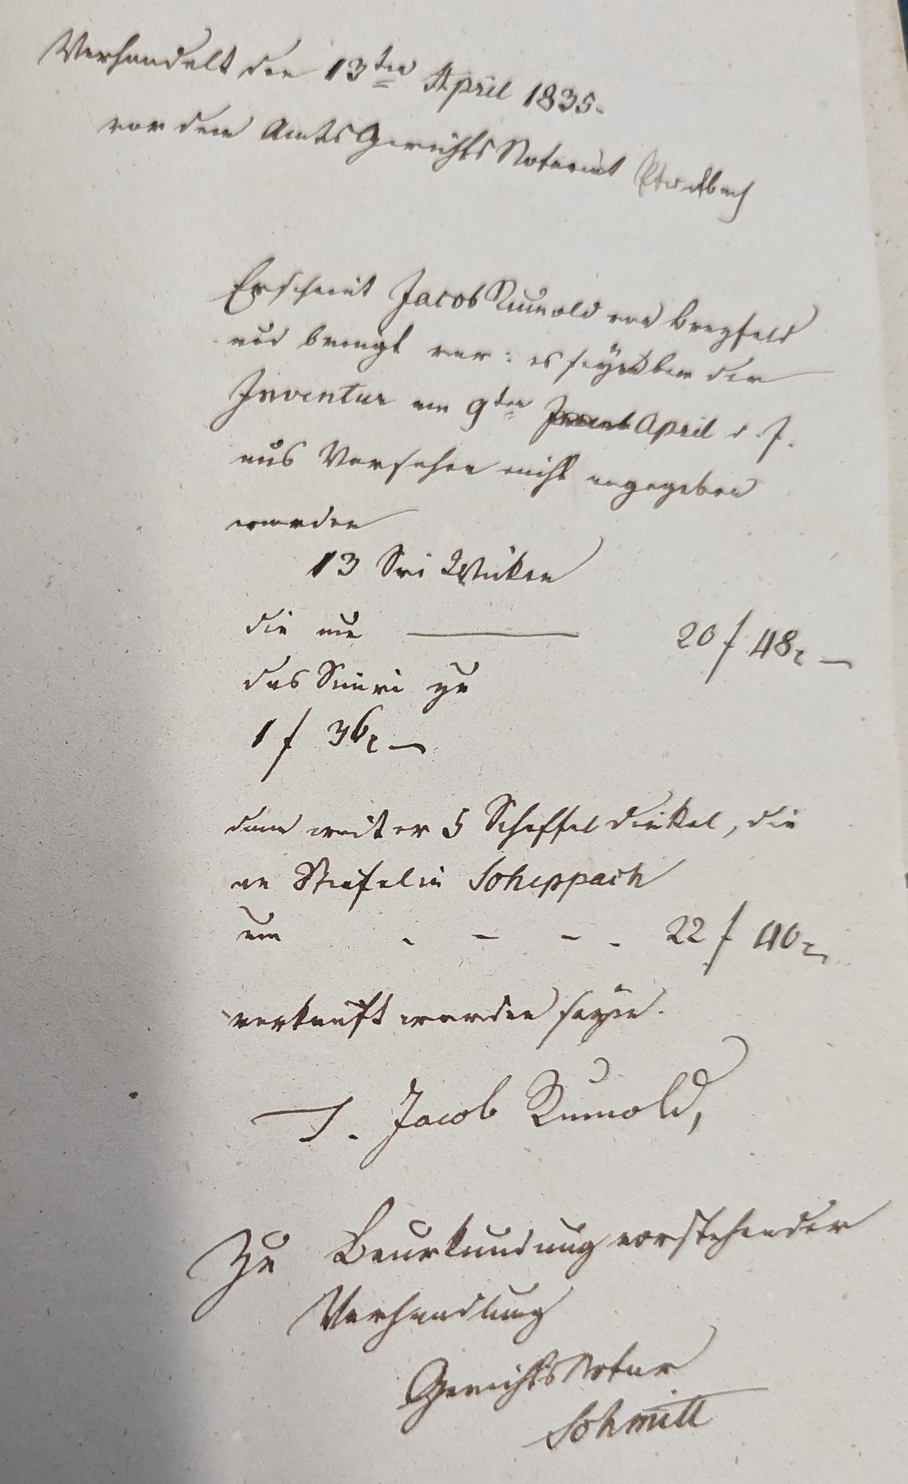 Verhandelt den 13ten April 1835.
vor dem AmtsGerichtsNotariat
Erscheint Jacob Rumold von Brezfeld
und bringt vor: es seye bei der
Inventur am 9ten April d. J.
aus Versehen nicht angegeben
worden
13 Sri Wicken
die um 20 f 48 x
das Simri zu
1 f 36 x
dann weiter 5 Scheffel Dinkel, die
an Scheppach
um - - - - 22 f 40 x
verkauft worden seyen.
T. Jacob Rumold,
Zu Beurkundung vorstehender
Verhandlung
GerichtsNotar
Schmitt